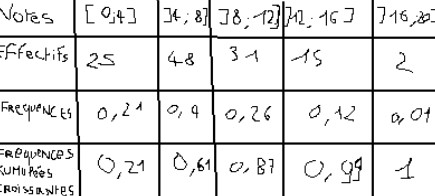 Notes [0;4] ]4;8] ]8;12] ]12;16] ]16;20]
Effectifs 25 48 31 15 2
Frequences 0,21 0,4 0,26 0,12 0,01
Frequences
Kumulées 0,21 0,61 0,87 0,99 1
croissantes